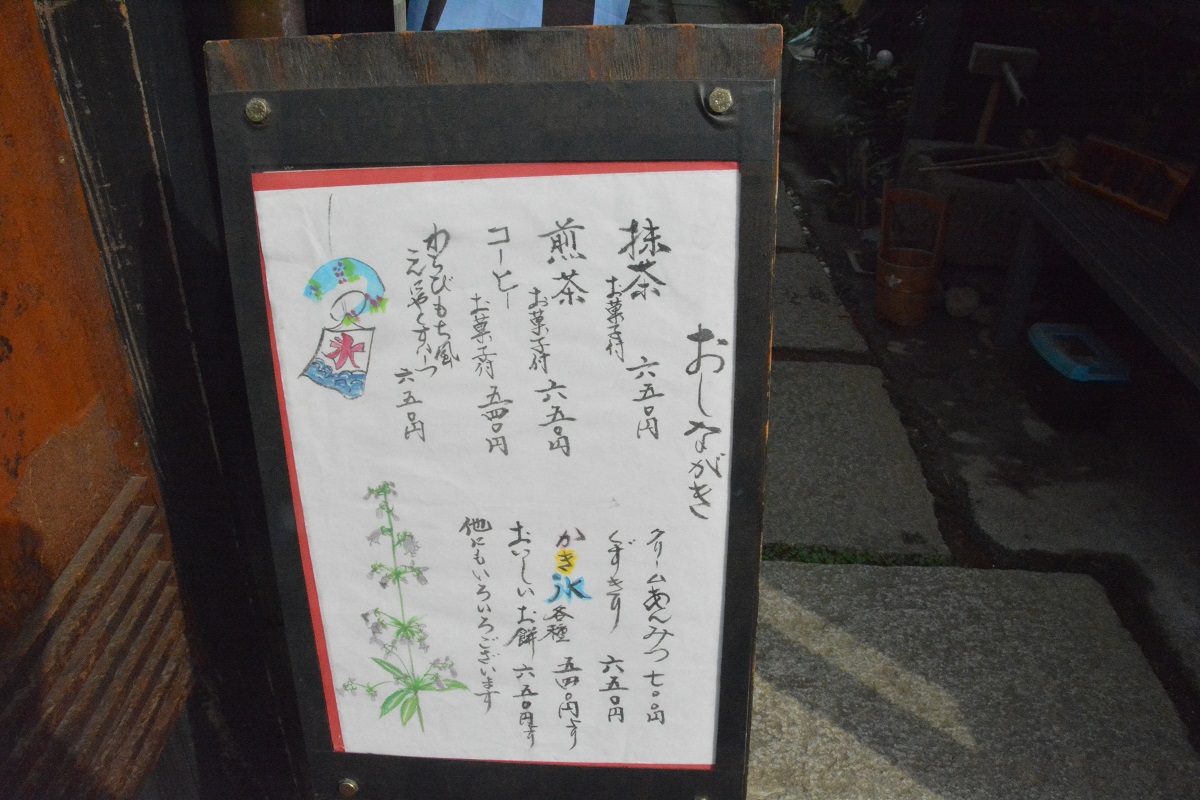 おしながき
抹茶
お菓子付
六五〇円
煎茶
お菓子付
六五〇円
コーヒー
お菓子付
五四〇円
わらびもち風
六五〇円
クリームあんみつ 七〇〇円
くずきり 六五〇円
かき氷 各種 五四〇円より
おいしいお餅 六五〇円より
他にもいろいろございます
氷